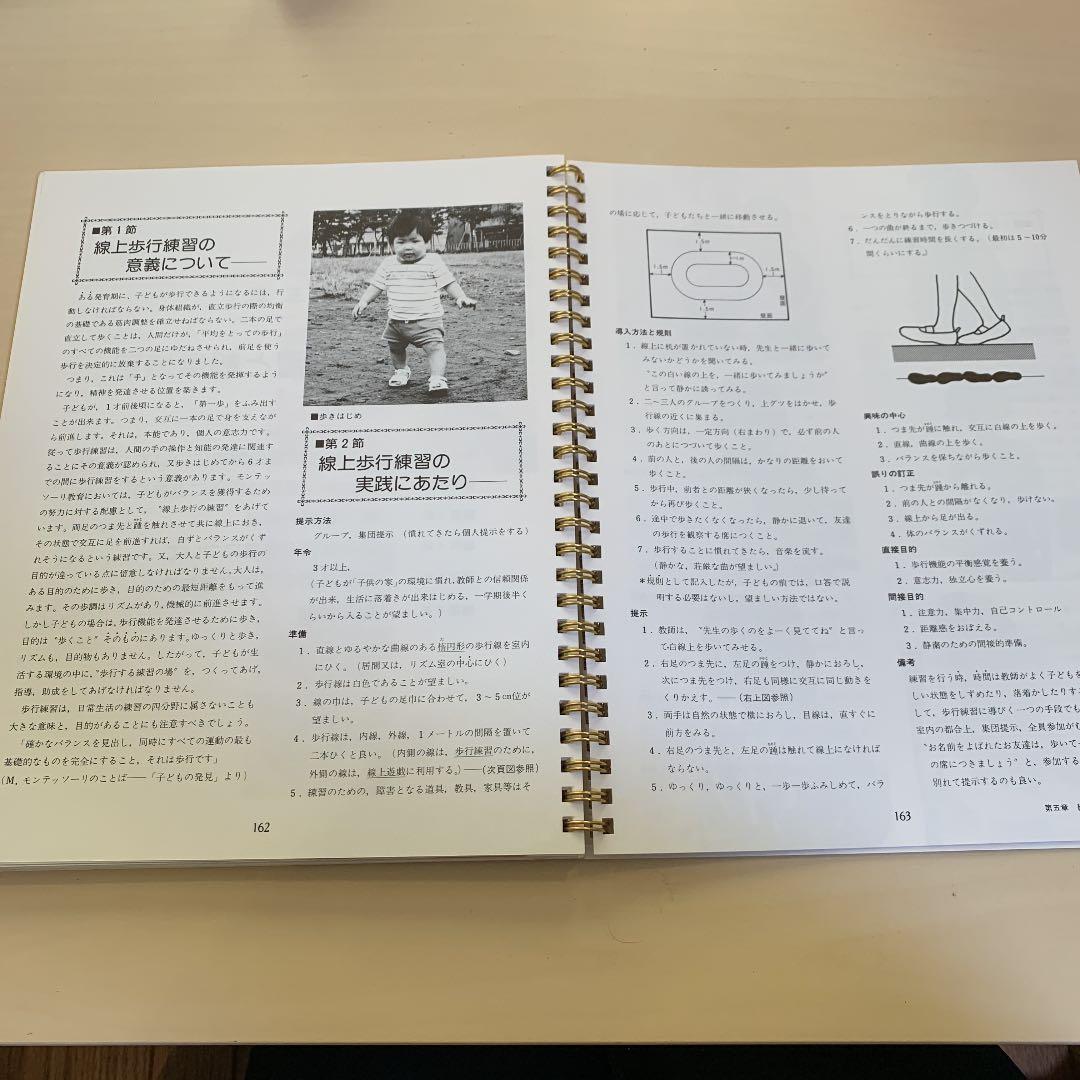 ■第1節
線上歩行練習の
意義について――
ある発育期に，子どもが歩行できるようになるには，行
動しなければならない。身体組織が，直立歩行の際の均衡
の基礎である筋肉調整を確立せねばならない。二本の足で
直立して歩くことは，人間だけが，「平均をとっての歩行」
のすべての機能を二つの足にゆだねさせられ，前足を使う
歩行を決定的に放棄することになりました。
つまり，これは「手」となってその機能を発揮するよう
になり，精神を発達させる位置を築きます。
子どもが，1才前後頃になると，「第一歩」をふみ出す
ことが出来ます。つまり，交互に一本の足で身を支えなが
ら前進します。それは，本能であり，個人の意志力です。
従って歩行練習は，人間の手の操作と知能の発達に関連す
ることにその意義が認められ，又歩きはじめてから6才ま
での間に歩行練習をするという意義があります。モンテッ
ソーリ教育においては，子どもがバランスを獲得するため
の努力に対する配慮として，“線上歩行の練習”をあげて
います。両足のつま先と踵を触れさせて共に線上におき，
その状態で交互に足を前進すれば，自ずとバランスがくず
れそうになるという練習です。又，大人と子どもの歩行の
目的が違っている点に留意しなければなりません。大人は，
ある目的のために歩き，目的のための最短距離をもって進
みます。その歩調はリズムがあり，機械的に前進させます。
しかし子どもの場合は，歩行機能を発達させるために歩き，
目的は“歩くこと”そのものにあります。ゆっくりと歩き，
リズムも，目的物もありません。したがって，子どもが生
活する環境の中に，“歩行する練習の場”を，つくってあげ，
指導，助成をしてあげなければなりません。
歩行練習は，日常生活の練習の四分野に属さないことも
大きな意味と，目的があることにも注意すべきでしょう。
「確かなバランスを見出し，同時にすべての運動の最も
基礎的なものを完全にすること，それは歩行です」
(M，モンテッソーリのことば――「子どもの発見」より)
■歩きはじめ
■第2節
線上歩行練習の
実践にあたり――
提示方法
グループ，集団提示（慣れてきたら個人提示をする）
年令
3才以上，
（子どもが「子供の家」の環境に慣れ，教師との信頼関係
が出来，生活に落着きが出来はじめる，一学期後半く
らいから入ることが望ましい。）
準備
1．直線とゆるやかな曲線のある楕円形の歩行線を室内
にひく。（居間又は，リズム室の中心にひく）
2．歩行線は白色であることが望ましい。
3．線の巾は，子どもの足巾に合わせて，3～5㎝位が
望ましい。
4．歩行線は，内線，外線，1メートルの間隔を置いて
二本ひくと良い。（内側の線は，歩行練習のために，
外側の線は，線上遊戯に利用する。）――（次頁図参照）
5．練習のための，障害となる道具，教具，家具等はそ
162
の場に応じて，子どもたちと一緒に移動させる。
1.5m
1.5m
1.5m
1.5m
壁面
壁面
導入方法と規則
1．線上に机が置かれていない時，先生と一緒に歩いて
みないかどうかを聞いてみる。
“この白い線の上を，一緒に歩いてみましょうか”
と言って静かに誘ってみる。
2．二～三人のグループをつくり，上グツをはかせ，歩
行線の近くに集まる。
3．歩く方向は，一定方向（右まわり）で，必ず前の人
のあとにつづいて歩くこと。
4．前の人と，後の人の間隔は，かなりの距離をおいて
歩くこと。
5．歩行中，前者との距離が狭くなったら，少し待って
から再び歩くこと。
6．途中で歩きたくなくなったら，静かに退いて，友達
の歩行を観察する席につくこと。
7．歩行することに慣れてきたら，音楽を流す。
（静かな，荘厳な曲が望ましい。）
＊規則として記入したが，子どもの前では，口答で説
明する必要はないし，望ましい方法ではない。
提示
1．教師は，“先生の歩くのをよーく見ててね”と言っ
て白線上を歩いてみせる。
2．右足のつま先に，左足の踵をつけ，静かにおろし，
次につま先をつけ，右足も同様に交互に同じ動きを
くりかえす。――（右上図参照）
3．両手は自然の状態で横におろし，目線は，直すぐに
前方をみる。
4．右足のつま先と，左足の踵は触れて線上になければ
ならない。
5．ゆっくり，ゆっくりと，一歩一歩ふみしめて，バラ
ンスをとりながら歩行する。
6．一つの曲が終るまで，歩きつづける。
7．だんだんに練習時間を長くする。（最初は5～10分
間くらいにする。）
興味の中心
1．つま先が踵に触れ，交互に白線の上を歩く。
2．直線，曲線の上を歩く。
3．バランスを保ちながら歩くこと。
誤りの訂正
1．つま先が踵から離れる。
2．前の人との間隔がなくなり，歩けない。
3．線上から足が出る。
4．体のバランスがくずれる。
直接目的
1．歩行機能の平衡感覚を養う。
2．意志力，独立心を養う。
間接目的
1．注意力，集中力，自己コントロール
2．距離感をおぼえる。
3．静粛のための間接的準備。
備考
練習を行う時，時間は教師がよく子どもを
しい状態をしずめたり，落着かしたりす
して，歩行練習に導びく一つの手段でも
室内の都合上，集団提示，全員参加が
“お名前をよばれたお友達は，歩いて
の席につきましょう”と，参加する
別れて提示するのも良い。
第五章
163